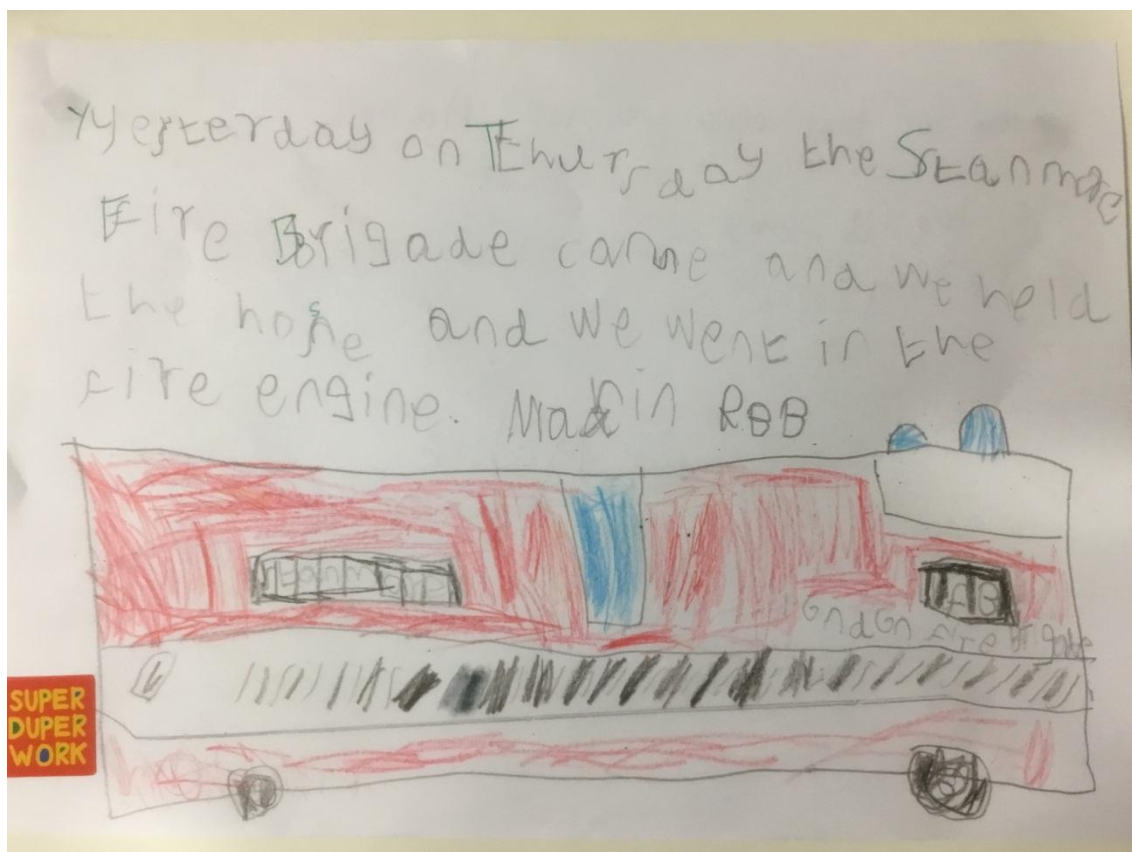 Yyesterday on Thursday the Stanmore
Fire Brigade came and we held
the hose and we went in the
fire engine. Made in RBB
London Fire Brigade
SUPER
DUPER
WORK